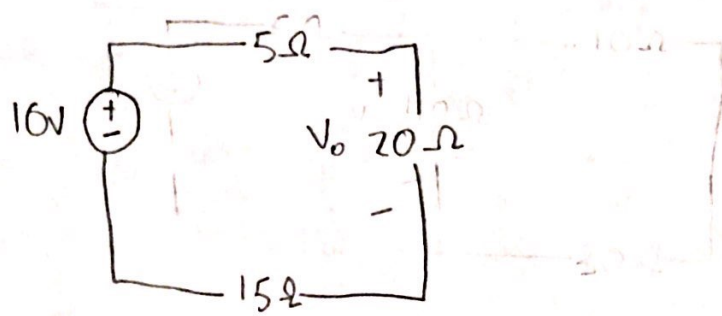 5Ω
+
10V + −
V₀ 20Ω
−
15Ω